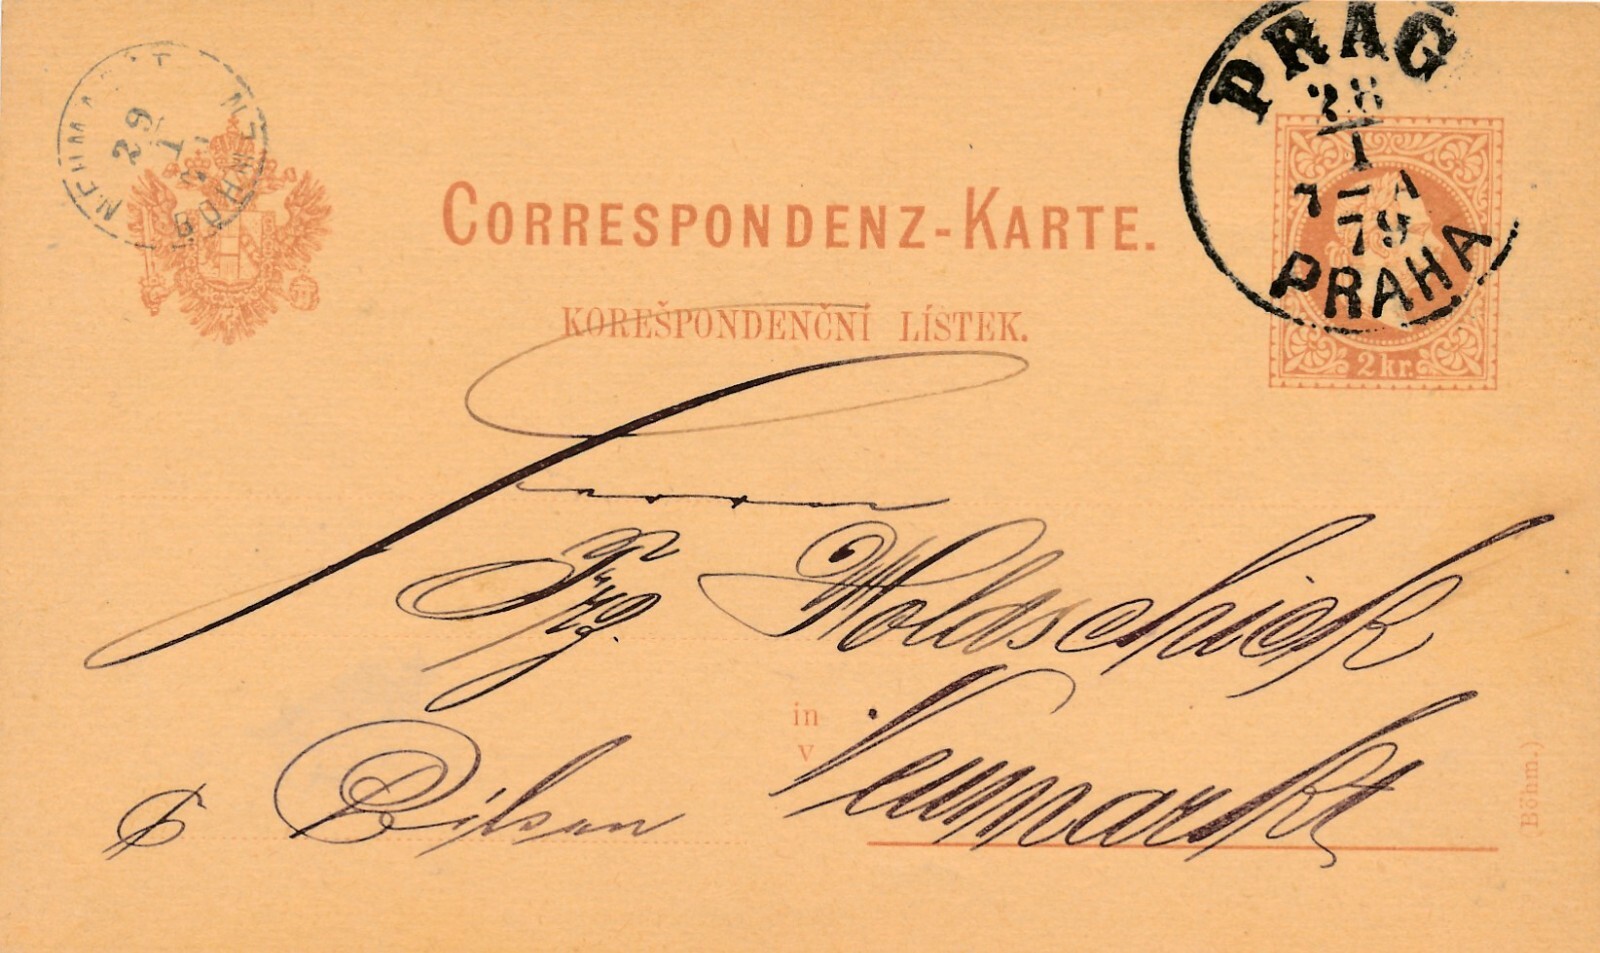 PRAG
28
1
7 – A
79
PRAHA
2 kr.
29
1
BÖHMEN
CORRESPONDENZ-KARTE.
KOREŠPONDENČNÍ LÍSTEK.
Woldschick
in
v
Neumarkt
Pilsen
(Böhm.)